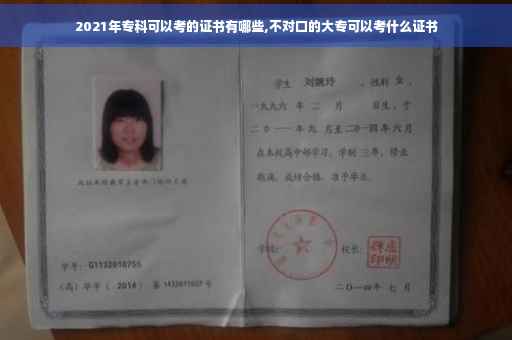 2021年专科可以考的证书有哪些,不对口的大专可以考什么证书
学生 刘婉玲 ，性别 女 ，
一九九六 年 二 月 日生，于
二〇一一 年 九 月至 二〇一四 年 六 月
在本校高中部学习，学制 三年，修业
期满，成绩合格，准予毕业。
学校： 校长：
学号： G1132010755
（高）毕字（ 2014 ）第 1432011027 号
二〇一四年 七 月